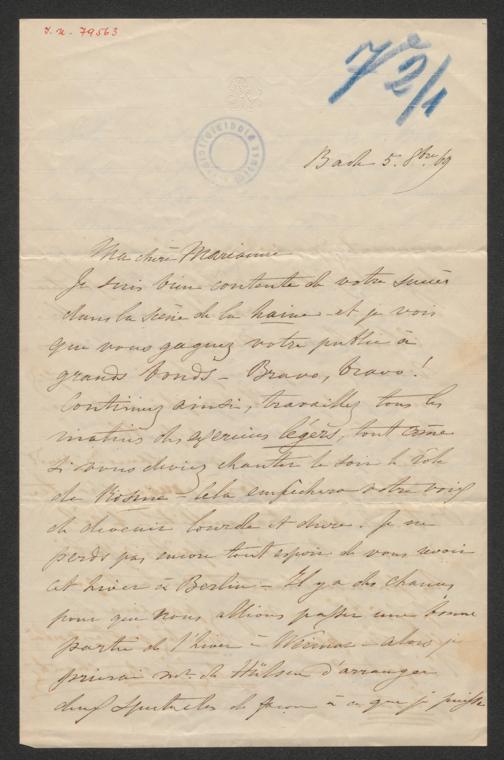 I. N. 79563
72/1
Bade 5. 8bre 69
Ma chère Marianne
Je suis bien contente de votre succès
dans la scène de la haine - et je vois
que vous gagnez votre public à
grands bonds - Bravo, bravo!
Continuez ainsi, travaillez tous les
matins des exercices légers, tout comme
si vous deviez chanter le soir le rôle
de Rosine - Cela empêchera votre voix
de devenir lourde et dure. Je ne
perds pas encore tout espoir de vous revoir
cet hiver à Berlin - Il y a des chances
pour que nous allions passer une bonne
partie de l'hiver à Weimar - alors je
prierai Mr. de Hülsen d'arranger
deux spectacles de façon à ce que je puisse